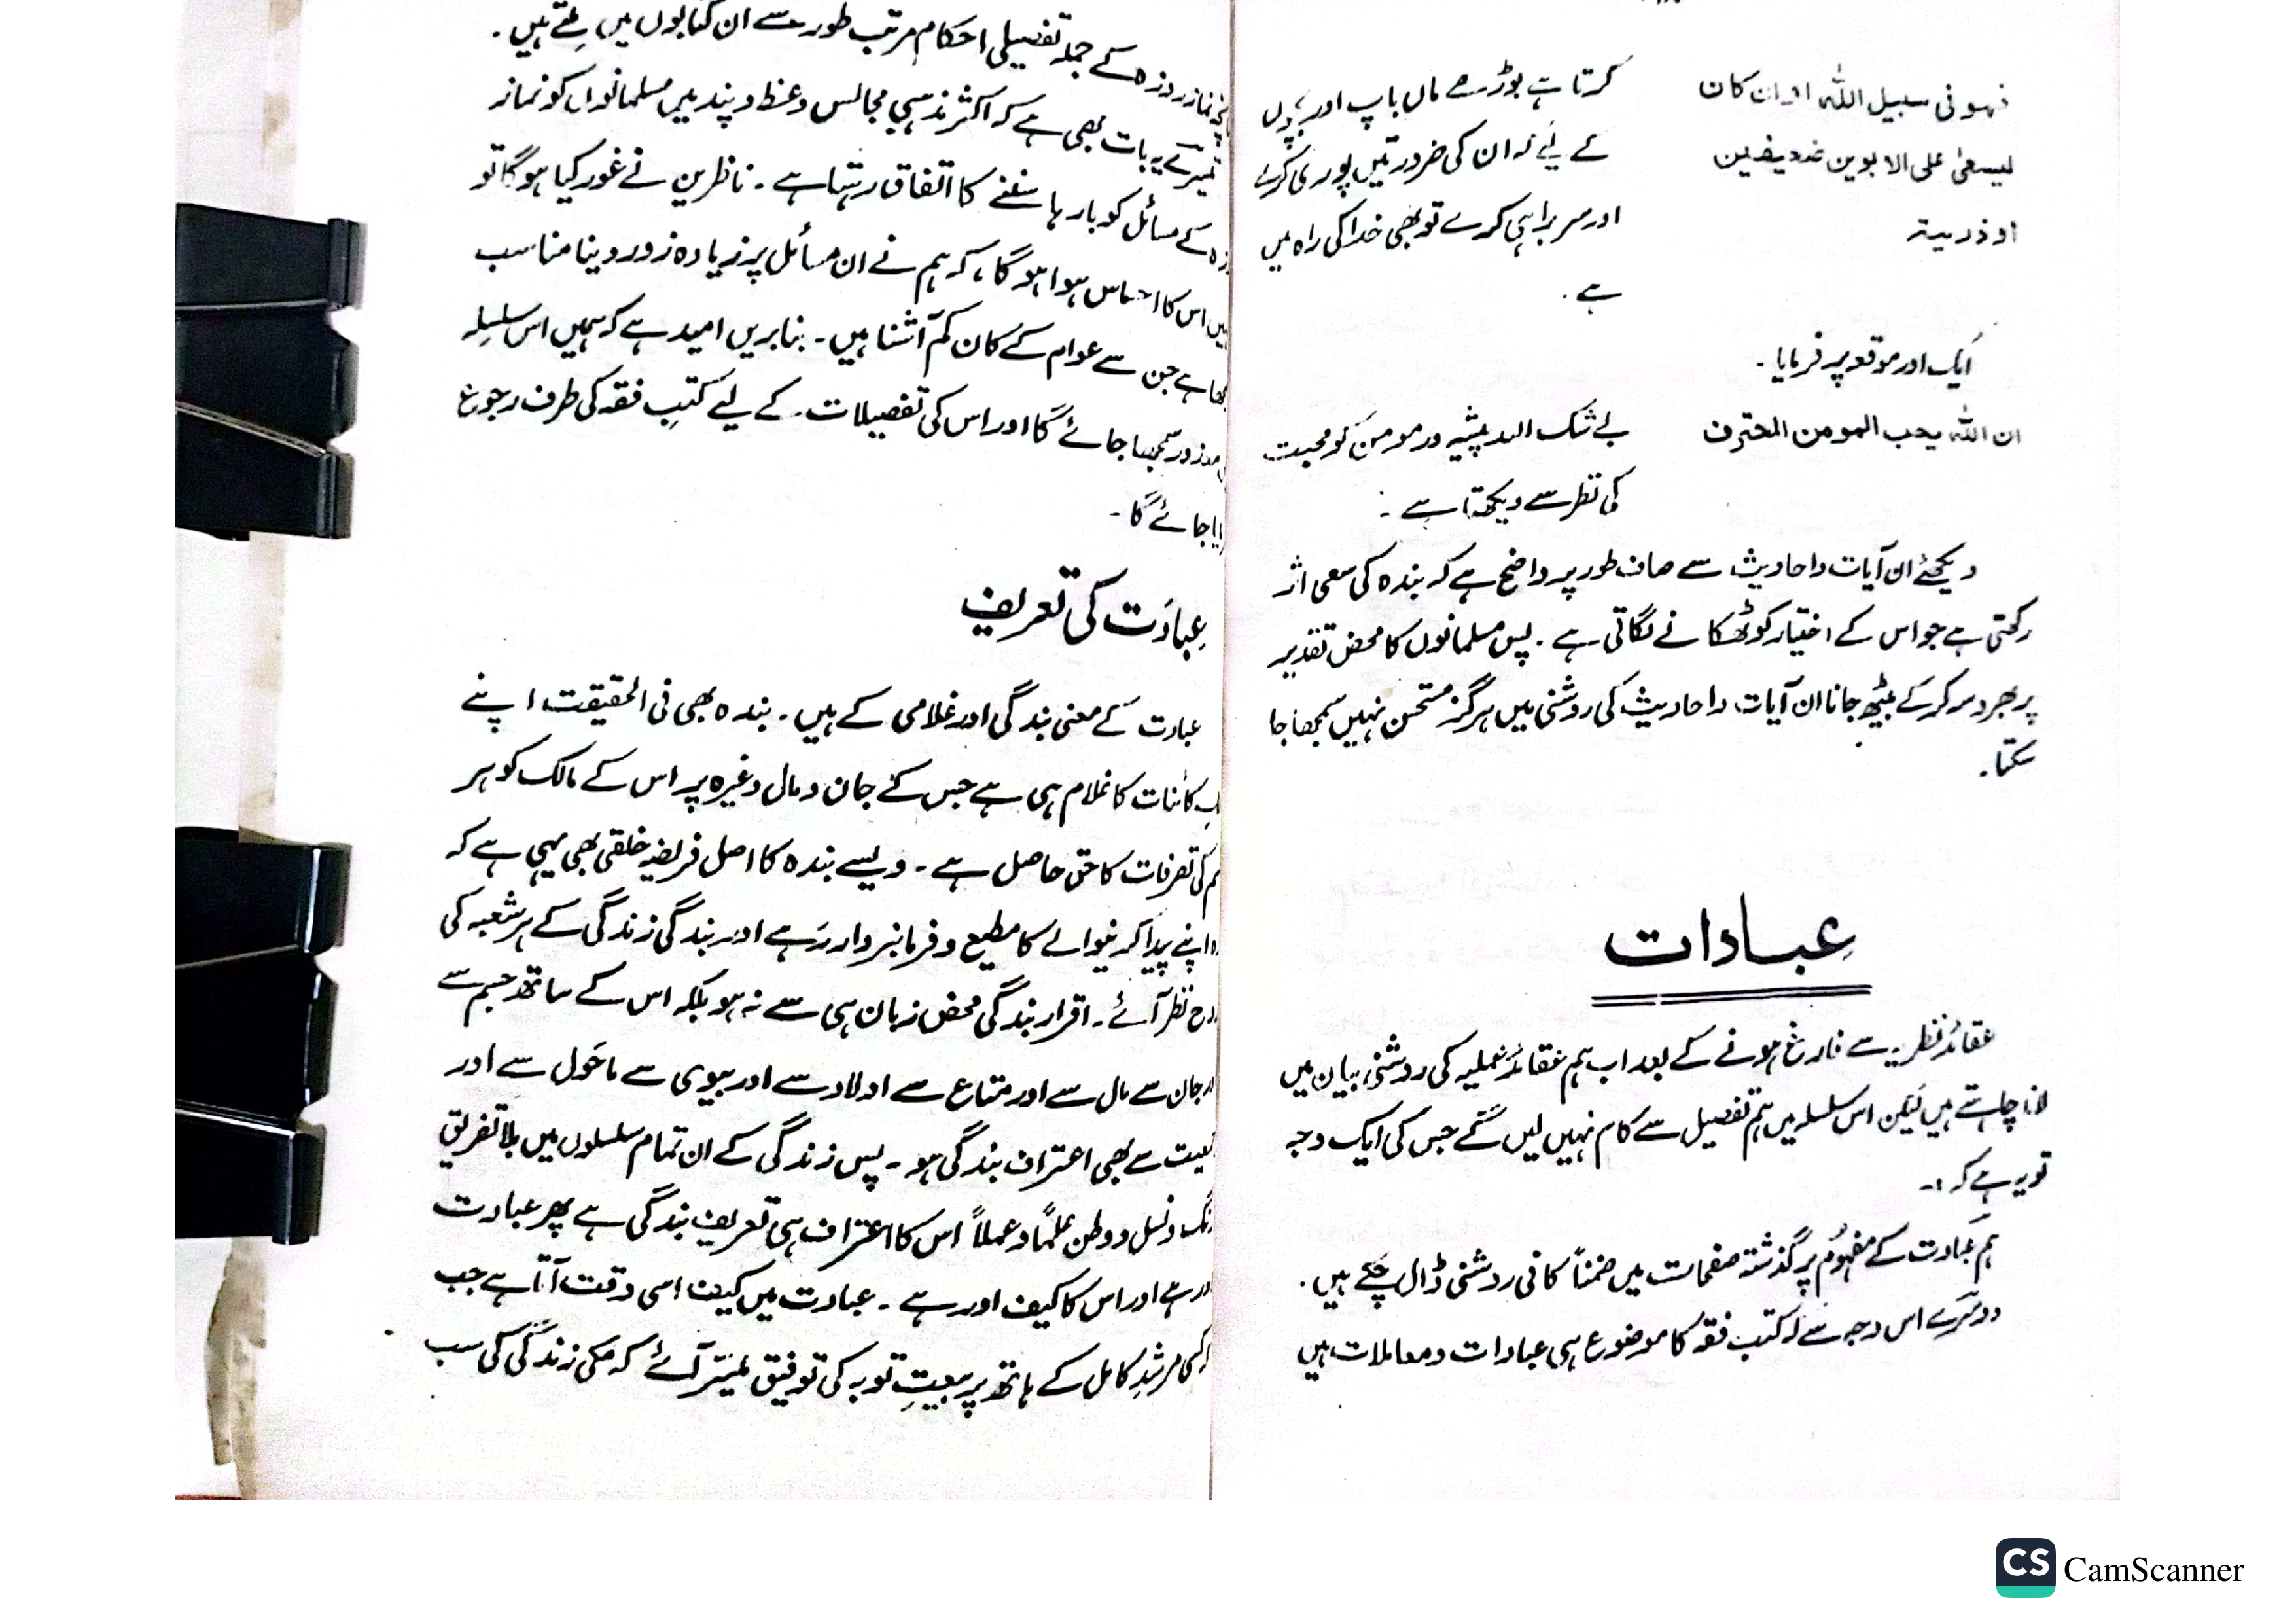 فہو فی سبیل اللہ اوان کان
یسعیٰ علی الابوین ضعیفین
او ذریۃ
کرتا ہے بوڑھے ماں باپ اور بچوں
کے لیے کہ ان کی ضرورتیں پوری کرے
اور سربراہی کرے تو بھی خدا کی راہ میں
ہے .
ایک اور موقعہ پر فرمایا ۔
ان اللہ یحب المومن المحترف
بے شک اللہ پیشہ ور مومن کو محبت
کی نظر سے دیکھتا ہے :
دیکھئے ان آیات و احادیث سے صاف طور پر واضح ہے کہ بندہ کی سعی اثر
رکھتی ہے جو اس کے اختیار کو ٹھکانے لگاتی ہے . پس مسلمانوں کا محض تقدیر
پر بھروسہ کرکے بیٹھ جانا ان آیات و احادیث کی روشنی میں ہرگز مستحسن نہیں سمجھا جا
سکتا .
عِبادات
عقائد نظریہ سے فارغ ہونے کے بعد اب ہم عقائد عملیہ کی روشنی بیان میں
لانا چاہتے ہیں لیکن اس سلسلہ میں ہم تفصیل سے کام نہیں لیں گے جس کی ایک وجہ
تو یہ ہے کہ :۔
ہم عبادت کے مفہوم پر گذشتہ صفحات میں ضمناً کافی روشنی ڈال چکے ہیں .
دوسرے اس وجہ سے کہ کتب فقہ کا موضوع ہی عبادات و معاملات ہیں
نماز روزہ کے جملہ تفصیلی احکام مرتب طور سے ان کتابوں میں ملتے ہیں .
تیسرے یہ بات بھی ہے کہ اکثر مذہبی مجالس وعظ و پند میں مسلمانوں کو نماز
کے مسائل کو بارہا سننے کا اتفاق رہتا ہے ۔ ناظرین نے غور کیا ہوگا تو
اس کا احساس ہوا ہوگا ، کہ ہم نے ان مسائل پر زیادہ زور دینا مناسب
ہے جن سے عوام کے کان کم آشنا ہیں ۔ بنابریں امید ہے کہ ہمیں اس سلسلہ
سمجھا جائے گا اور اس کی تفصیلات کے لیے کتبِ فقہ کی طرف رجوع
جائے گا ۔
عِبادَت کی تعریف
عبادت کے معنی بندگی اور غلامی کے ہیں ۔ بندہ بھی فی الحقیقت اپنے
کائنات کا غلام ہی ہے جس کے جان و مال وغیرہ پر اس کے مالک کو ہر
کی تصرفات کا حق حاصل ہے ۔ ویسے بندہ کا اصل فریضہ خلقی بھی یہی ہے کہ
اپنے پیدا کرنیوالے کا مطیع و فرمانبردار رہے اور بندگی زندگی کے ہر شعبہ کی
نظر آئے ۔ اقرار بندگی محض زبان ہی سے نہ ہو بلکہ اس کے ساتھ جسم سے
جان سے مال سے اور متاع سے اولاد سے اور بیوی سے ماحول سے اور
سے بھی اعتراف بندگی ہو ۔ پس زندگی کے ان تمام سلسلوں میں بلا تفریق
و نسل و وطن علماً و عملاً اس کا اعتراف ہی تعریف بندگی ہے پھر عبادت
ہے اور اس کا کیف اور ہے ۔ عبادت میں کیف اسی وقت آتا ہے جب
مرشدِ کامل کے ہاتھ پر بیعتِ توبہ کی توفیق میسر آئے کہ مکی زندگی کی سب
CS CamScanner